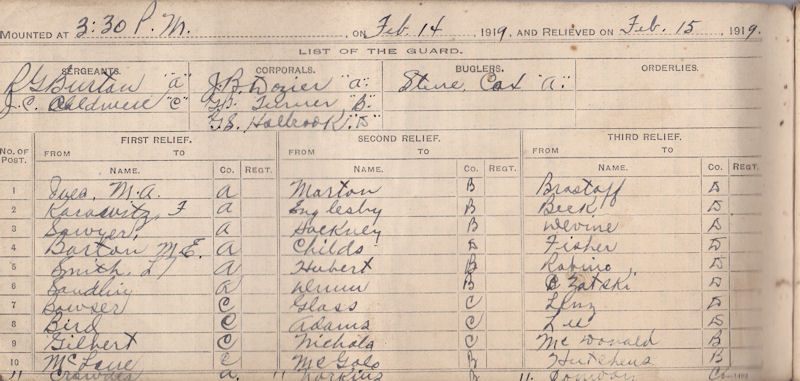 MOUNTED AT 3:30 P.M. , ON Feb. 14 1919, AND RELIEVED ON Feb. 15 , 1919.
LIST OF THE GUARD.
SERGEANTS. CORPORALS. BUGLERS. ORDERLIES.
R G Burton "A" J.B. Dozier "A". Steve, Cox "A".
J.C. Caldwell "C" Turner "B".
G.E. Holbrook "D"
NO. OF POST. FIRST RELIEF. SECOND RELIEF. THIRD RELIEF.
FROM TO FROM TO FROM TO
NAME. CO. REGT. NAME. CO. REGT. NAME. CO. REGT.
1 M.A. A Marton B Brastoff D
2 Karawitz, F A Englesby B Beck D
3 Sawyer, A Hackney B Devine D
4 Barton M.E. A Childs D Fisher D
5 Smith, L A Hubert B Rabino D
6 A B Zatski D
7 Bowser C Glass C Lenz D
8 Bird C Adams C Lee D
9 Gilbert C Nichols C McDonald B
10 McLane C McGolo B Hutchens B
11 A. 11 11